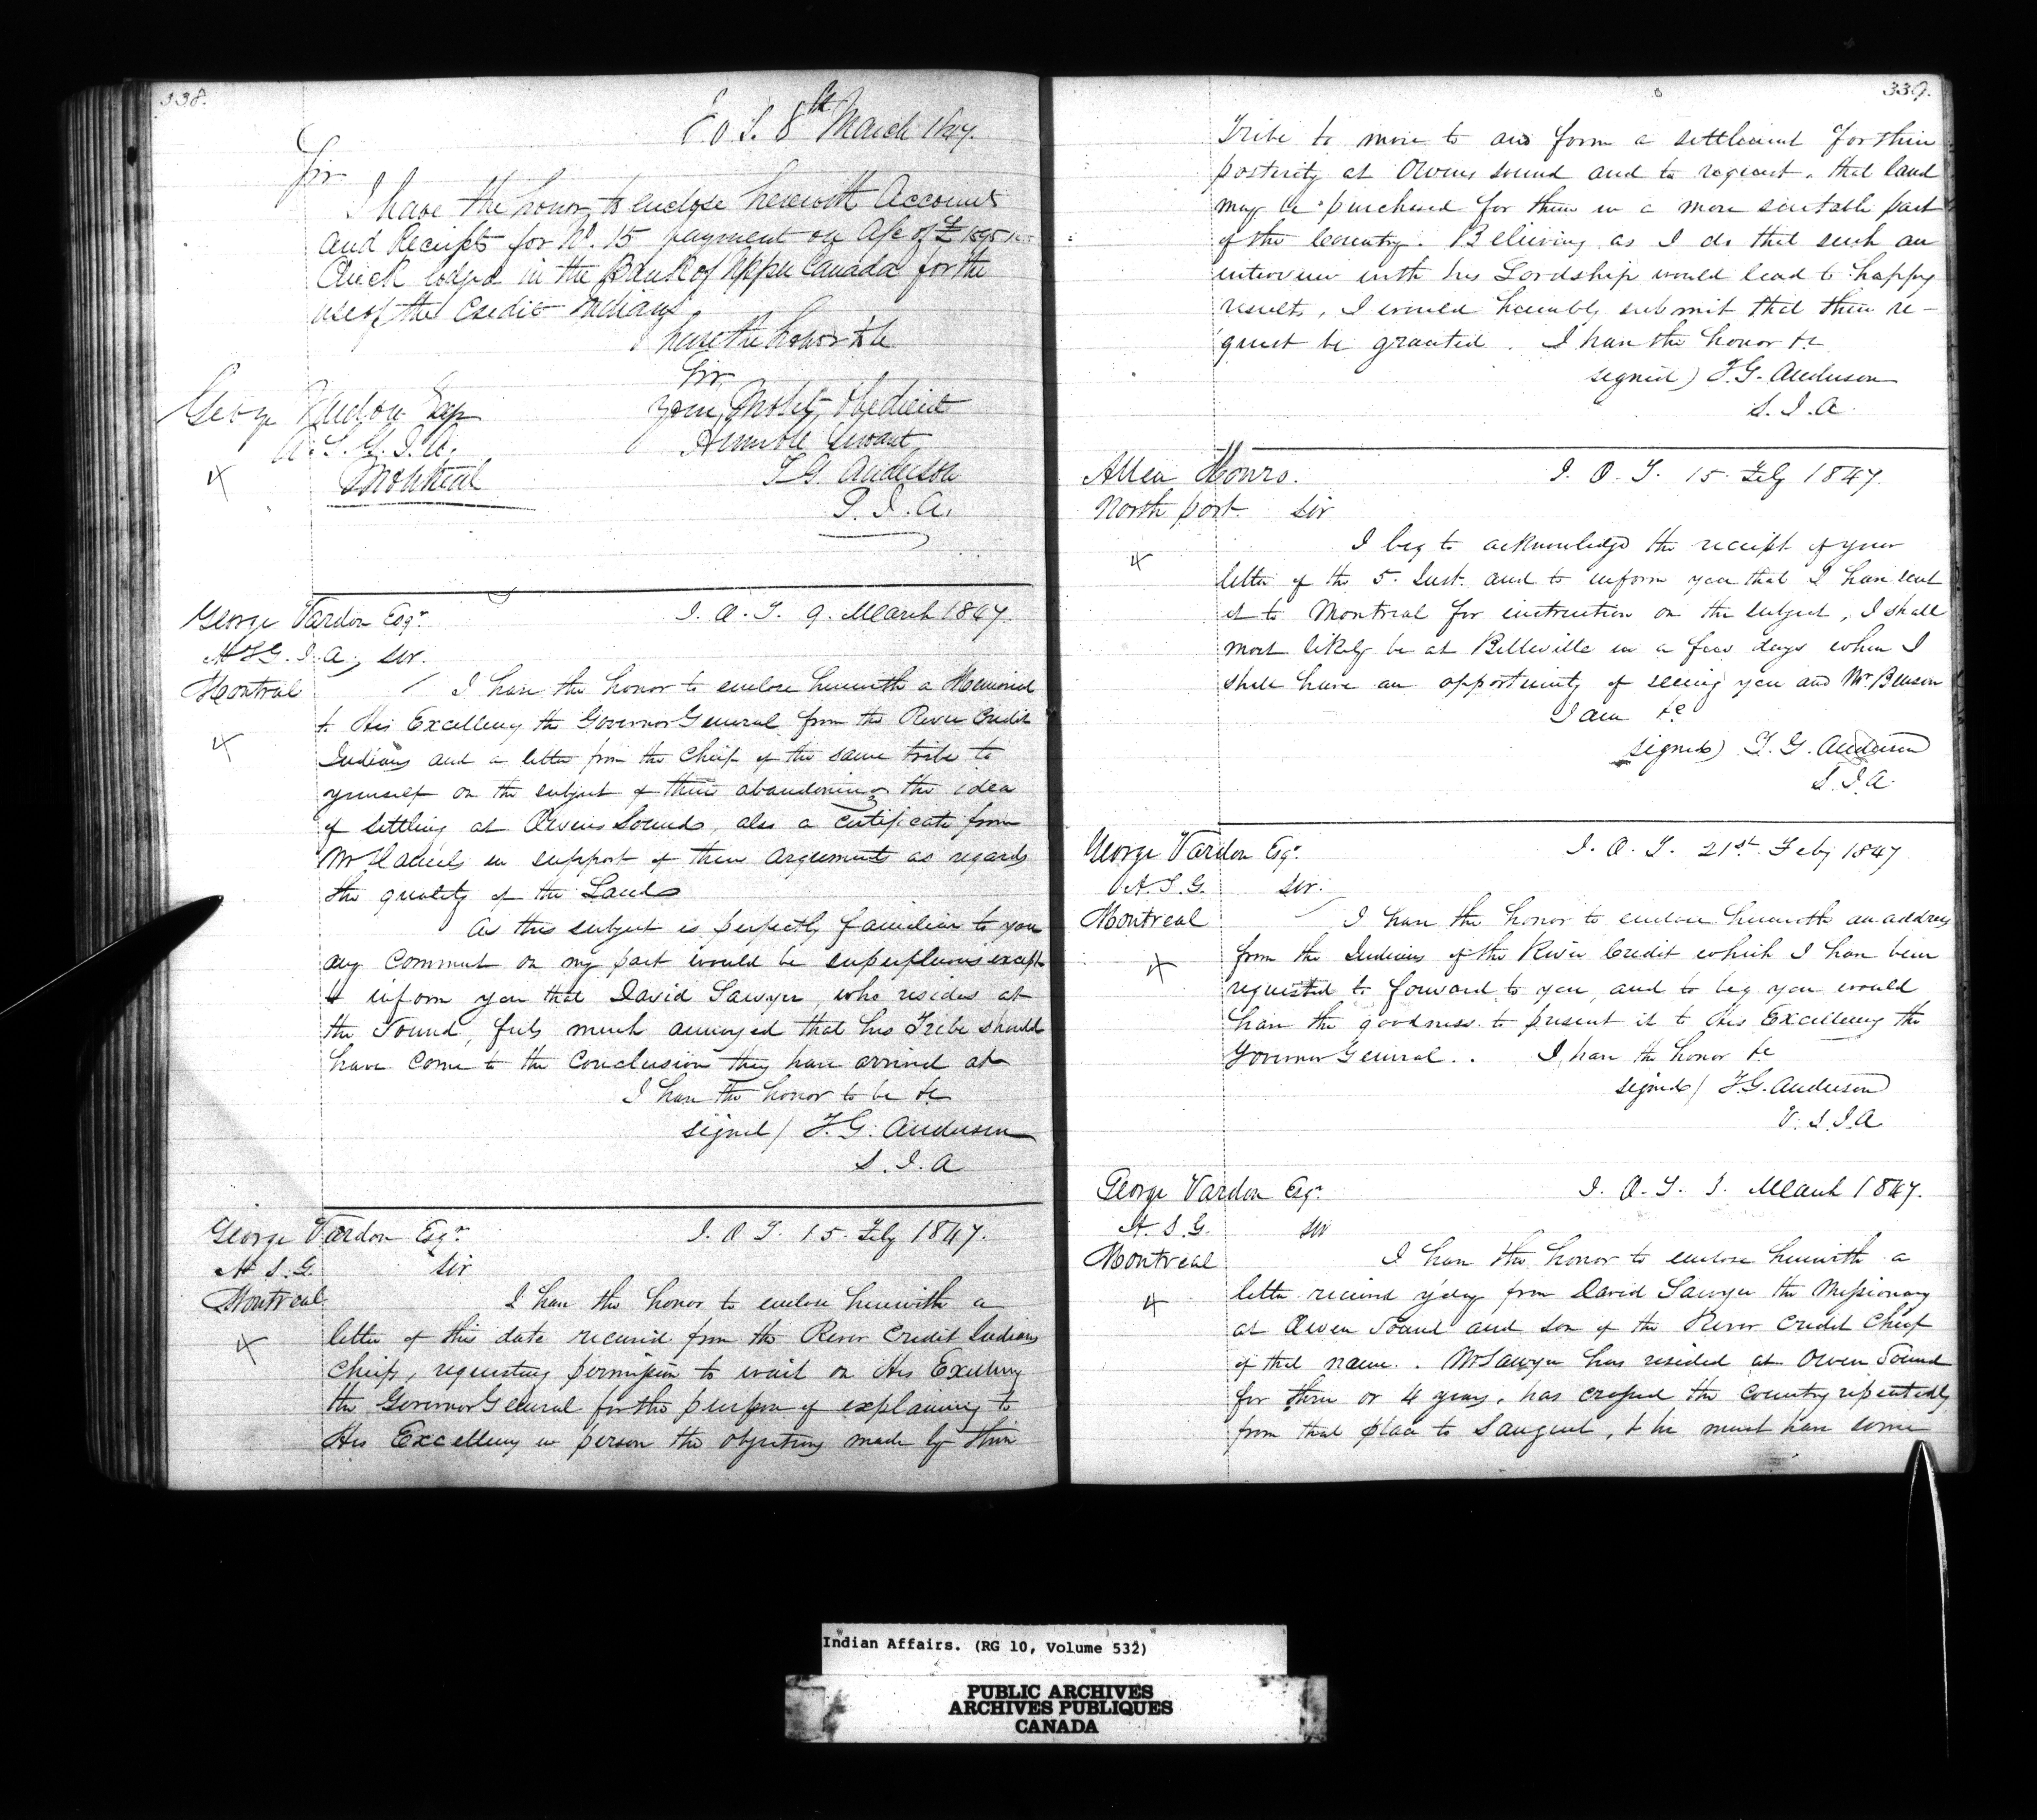 338.
I. O. T. 8th March 1847.
Sir
I have the honor to enclose herewith Accounts
and Receipts for No. 15 payment on A/c of £
Check lodged in the Bank of Upper Canada for the
use of the Credit Indians
I have the honor to be
Sir
your most obedient
Humble Servant
T G Anderson
S. I. A.
George Vardon Esqr
A. S. G. I. A.
Montreal
George Vardon Esqr. I. O. T. 9. March 1847.
A S G. I. A., Sir.
Montreal I have the honor to enclose herewith a Memorial
to His Excellency the Governor General from the River Credit
Indians and a letter from the Chief of the same tribe to
yourself on the subject of their abandoning the idea
of settling at Owens Sound, also a certificate from
Mr in support of their arguements as regards
the quality of the Land
As this subject is perfectly familiar to you
any comment on my part would be superfluous except
to inform you that David Sawyer, who resides at
the Sound, feels much annoyed that his Tribe should
have come to the conclusion they have arrived at
I have the honor to be &c
signed / T. G. Anderson
S. I. A
George Vardon Esqr. I. O T. 15. Feby 1847.
A S. G. Sir
Montreal I have the honor to enclose herewith a
letter of this date received from the River Credit Indians
Chiefs, requesting permission to wait on His Excellency
the Governor General for the purpose of explaining to
His Excellency in person the objections made by their
339.
Tribe to move to and form a settlement for their
posterity at Owens sound and to request, that land
may be purchased for them in a more suitable part
of the Country. Believing as I do that such an
interview with his Lordship would lead to happy
results, I would humbly submit that their re-
quest be granted. I have the honor &c
signed) T. G. Anderson
S. I. A.
Allen Monro. I. O. T. 15. Feby 1847.
North port. Sir
I beg to acknowledge the receipt of your
letter of the 5. Inst. and to inform you that I have sent
it to Montreal for instruction on the subject, I shall
most likely be at Belleville in a few days when I
shall have an opportunity of seeing you and Mr. Benson
I am &c
signed) T. G. Anderson
S. I. A.
George Vardon Esqr. I. O. T. 21st. Feby 1847
A. S. G. Sir.
Montreal I have the honor to enclose herewith an address
from the Indians of the River Credit which I have been
requested to forward to you, and to beg you would
have the goodness to present it to His Excellency the
Governor General. . I have the honor &c
signed / T. G. Anderson
V. S. I. A
George Vardon Esqr. I. O. T. March 1847.
A. S. G. Sir
Montreal I have the honor to enclose herewith a
letter received y'day from David Sawyer the Missionary
at Owen Sound and Son of the River Credit Chief
of that name. . Mr Sawyer has resided at Owen Sound
for three or 4 years, has crossed the country repeatedly
from that place to Saugeen, & he must have some
Indian Affairs. (RG 10, Volume 532)
PUBLIC ARCHIVES
ARCHIVES PUBLIQUES
CANADA